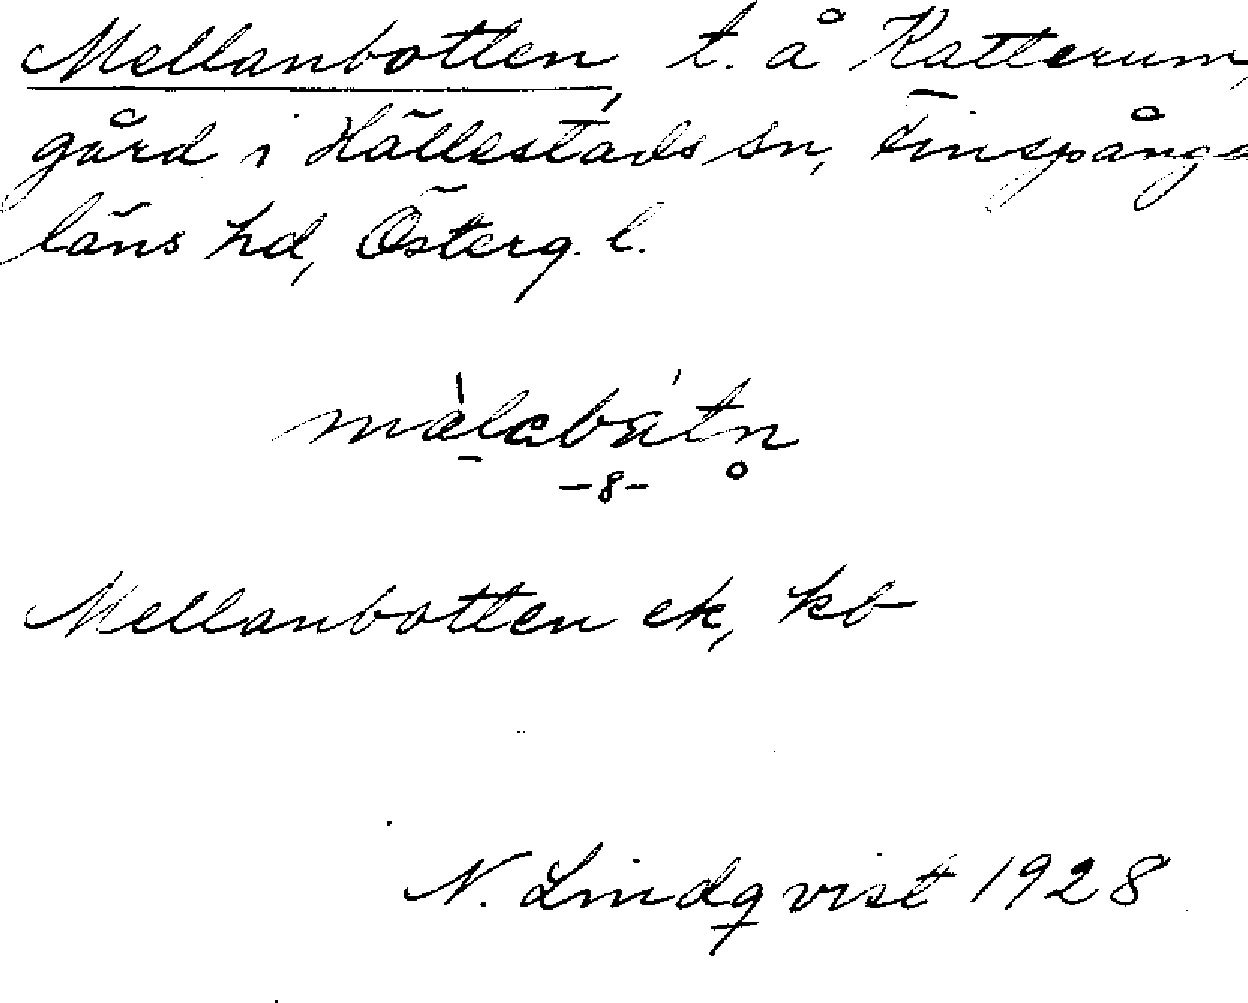 Mellanbotten, t. å Katterum,
gård i Hällestads sn, Finspånga
läns hd, Österg. l.
Mellanbotten ek, kb
N. Lindqvist 1928